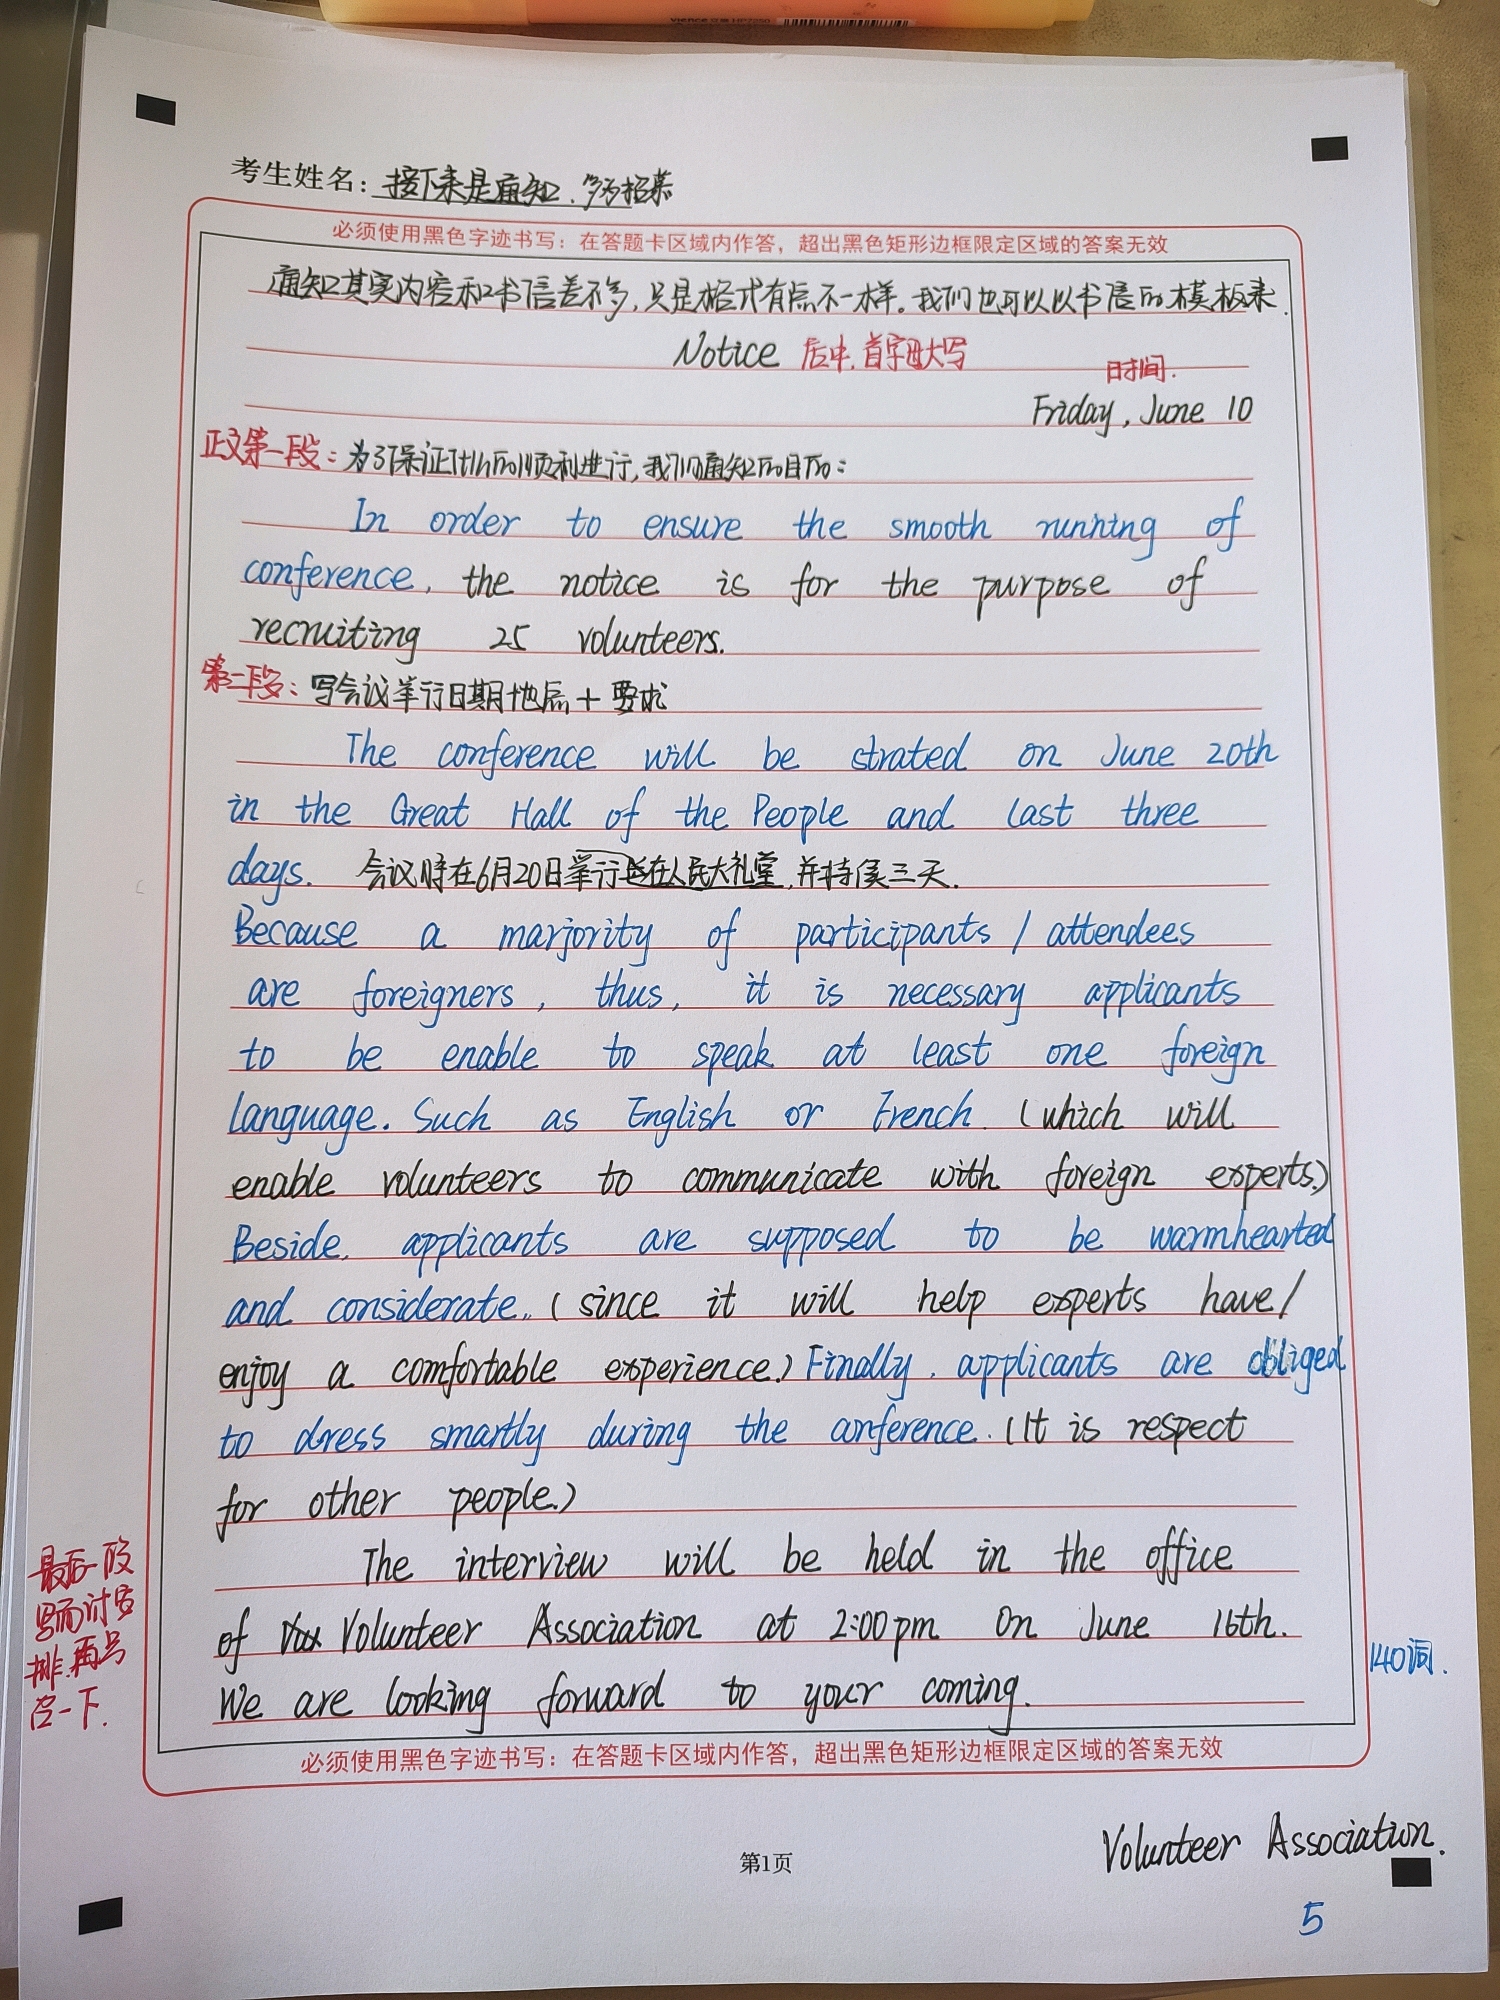 考生姓名：接下来是通知.多为招募
必须使用黑色字迹书写：在答题卡区域内作答，超出黑色矩形边框限定区域的答案无效
通知其实内容和书信差不多,只是格式有点不一样。我们也可以以书信的模板来.
Notice 居中.首字母大写
时间.
Friday, June 10
正文第一段：为了保证什么的顺利进行,我们通知的目的：
In order to ensure the smooth running of
conference, the notice is for the purpose of
recruiting 25 volunteers.
第二段：写会议举行日期地点+要求
The conference will be strated on June 20th
in the Great Hall of the People and last three
days. 会议将在6月20日举行在人民大礼堂,并持续三天.
Because a marjority of participants / attendees
are foreigners, thus, it is necessary applicants
to be enable to speak at least one foreign
language. Such as English or French. (which will
enable volunteers to communicate with foreign experts.)
Beside, applicants are supposed to be warmhearted
and considerate, (since it will help experts have/
enjoy a comfortable experience.) Finally, applicants are obliged
to dress smartly during the conference. (It is respect
for other people.)
The interview will be held in the office
of Volunteer Association at 2:00pm on June 16th.
We are looking forward to your coming.
最后一段
写面试安
排.再号
召一下.
140词.
必须使用黑色字迹书写：在答题卡区域内作答，超出黑色矩形边框限定区域的答案无效
Volunteer Association.
第1页
5